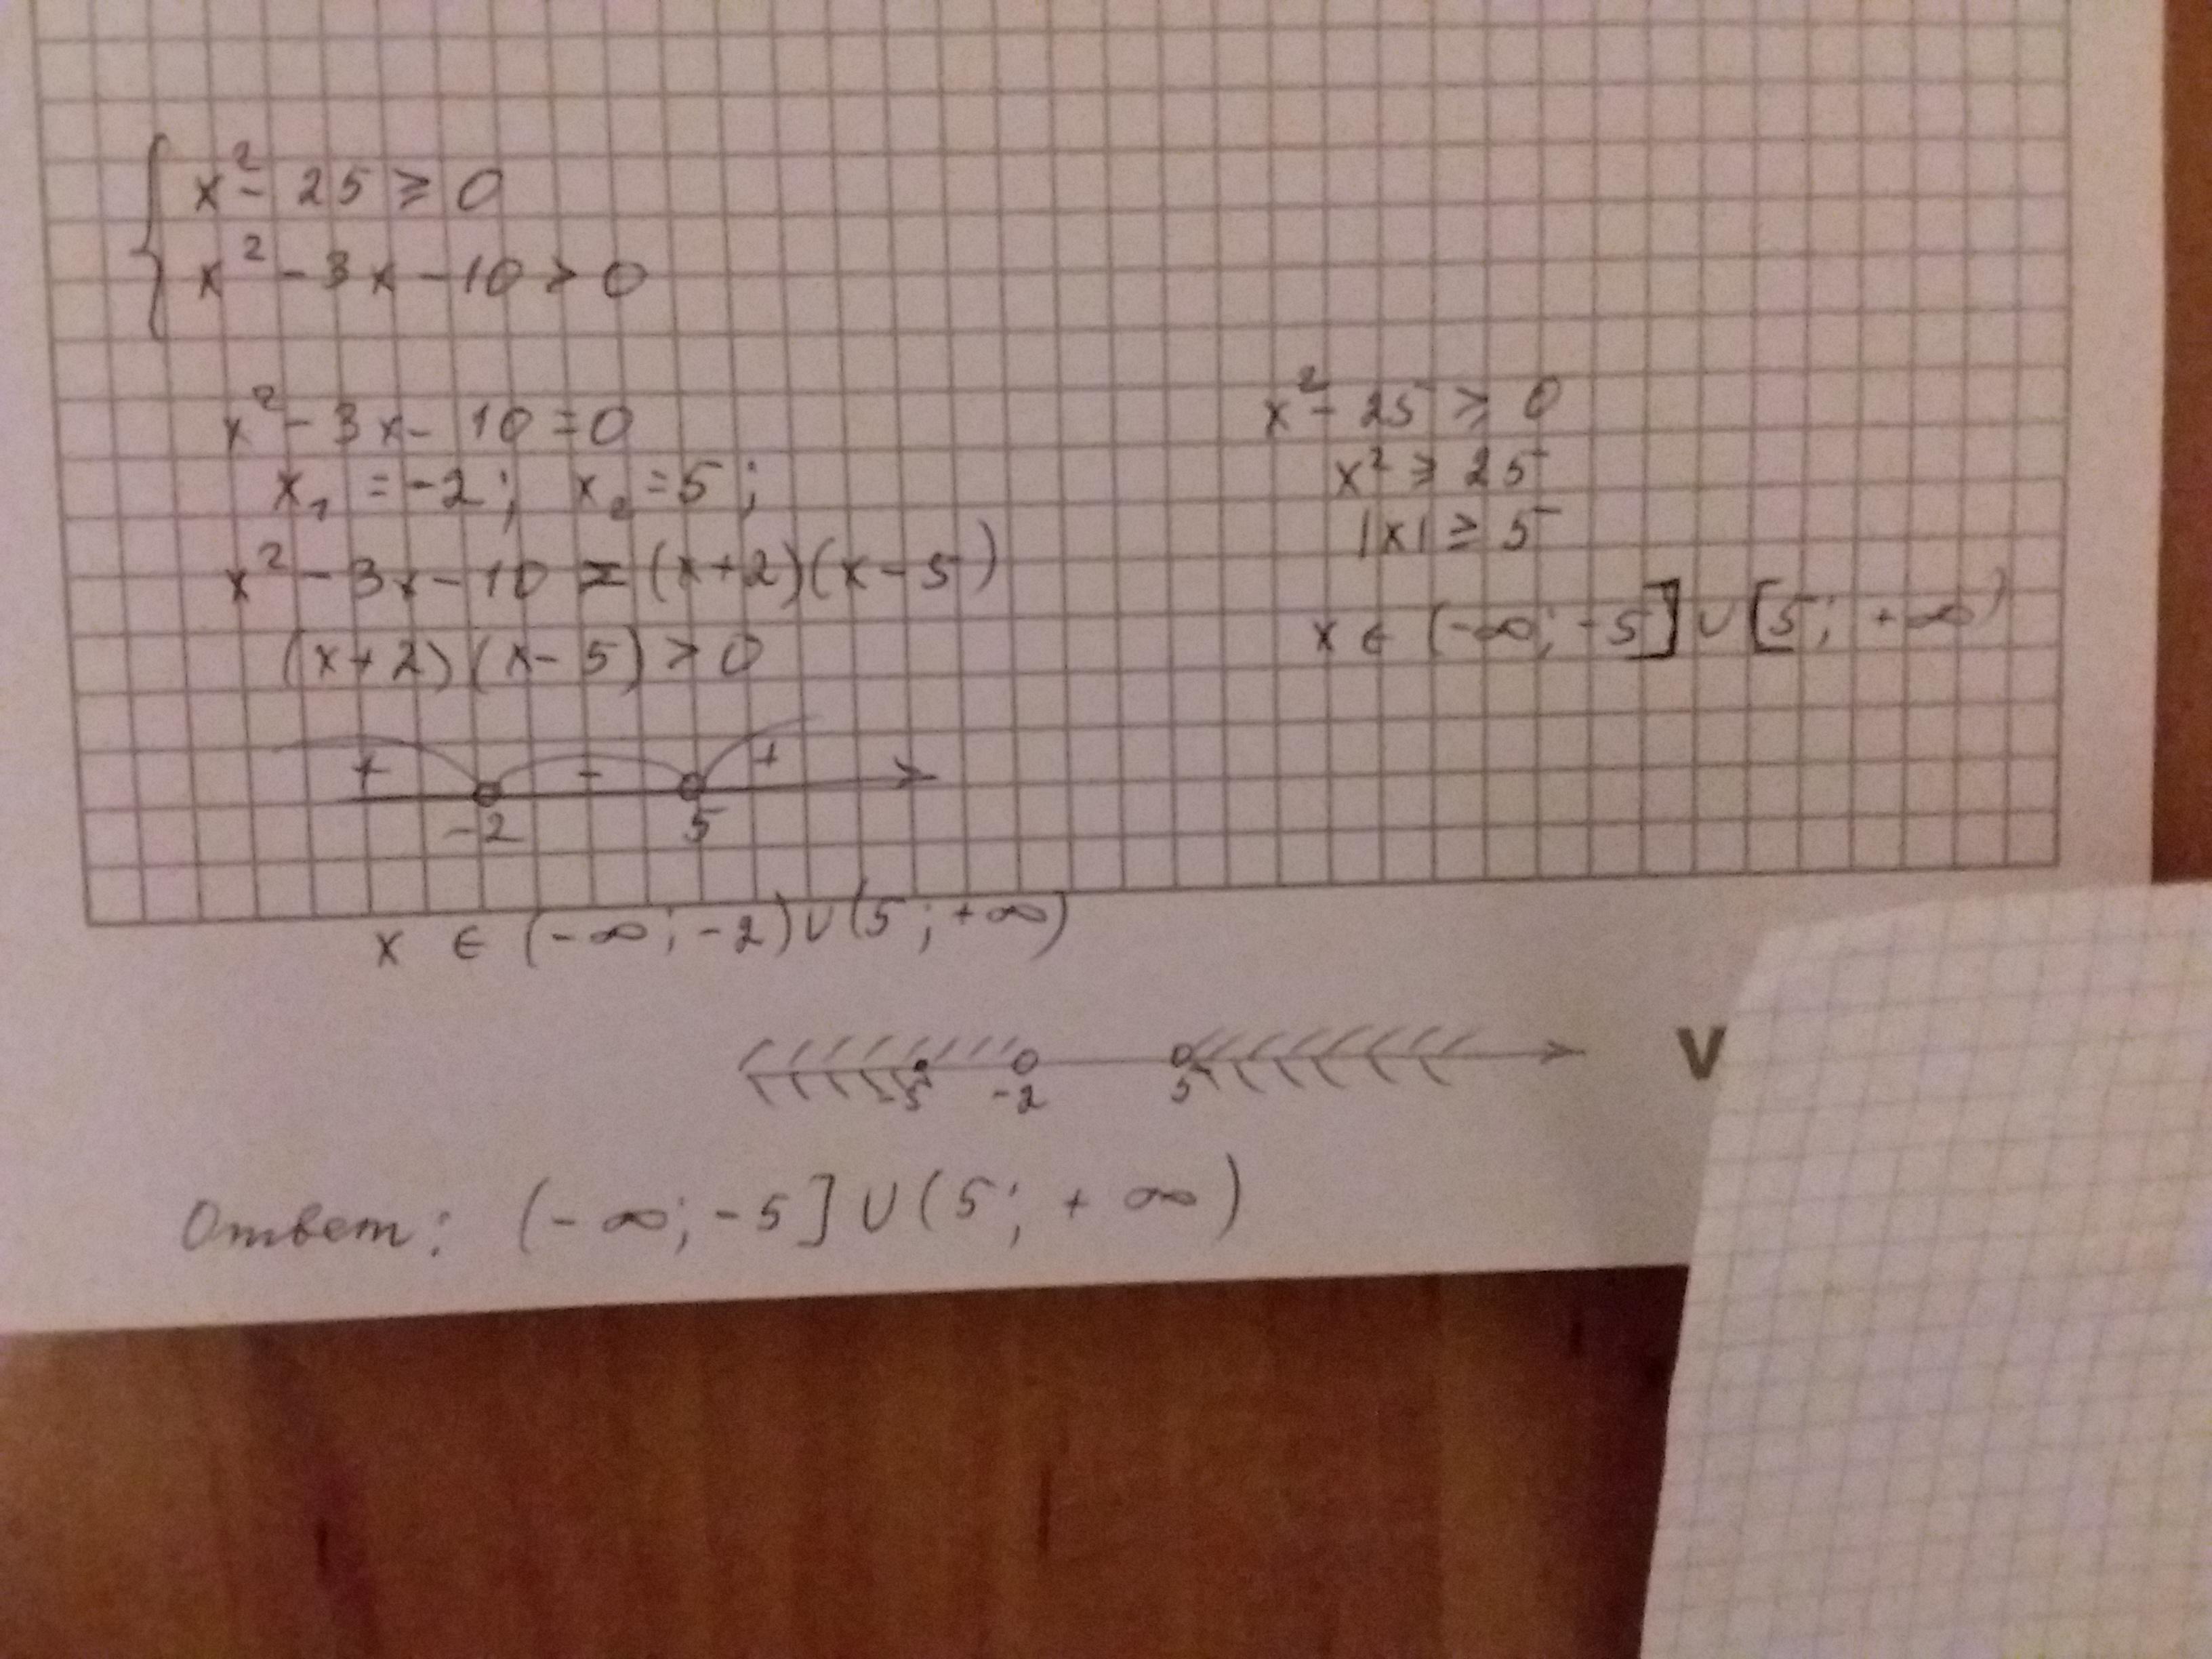 x² - 25 ≥ 0
x² - 3x - 10 > 0
x² - 3x - 10 = 0
x₁ = -2; x₂ = 5;
x² - 3x - 10 = (x+2)(x-5)
(x+2)(x-5) > 0
+ - +
-2 5
x ∈ (-∞; -2) ∪ (5; +∞)
x² - 25 ≥ 0
x² ≥ 25
|x| ≥ 5
x ∈ (-∞; -5] ∪ [5; +∞)
-5 -2 5
V
Ответ: (-∞; -5] ∪ (5; +∞)